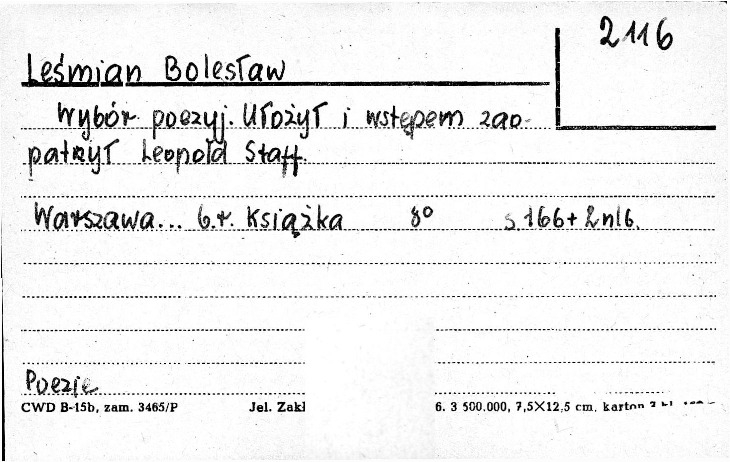 2116
Leśmian Bolesław
Wybór poezyj. Ułożył i wstępem zao-
patrzył Leopold Staff.
Warszawa... b.r. Książka 8° s 166+2nlb.
Poezje
CWD B-15b, zam. 3465/P Jel. Zakł 6. 3 500.000, 7,5×12,5 cm, karton